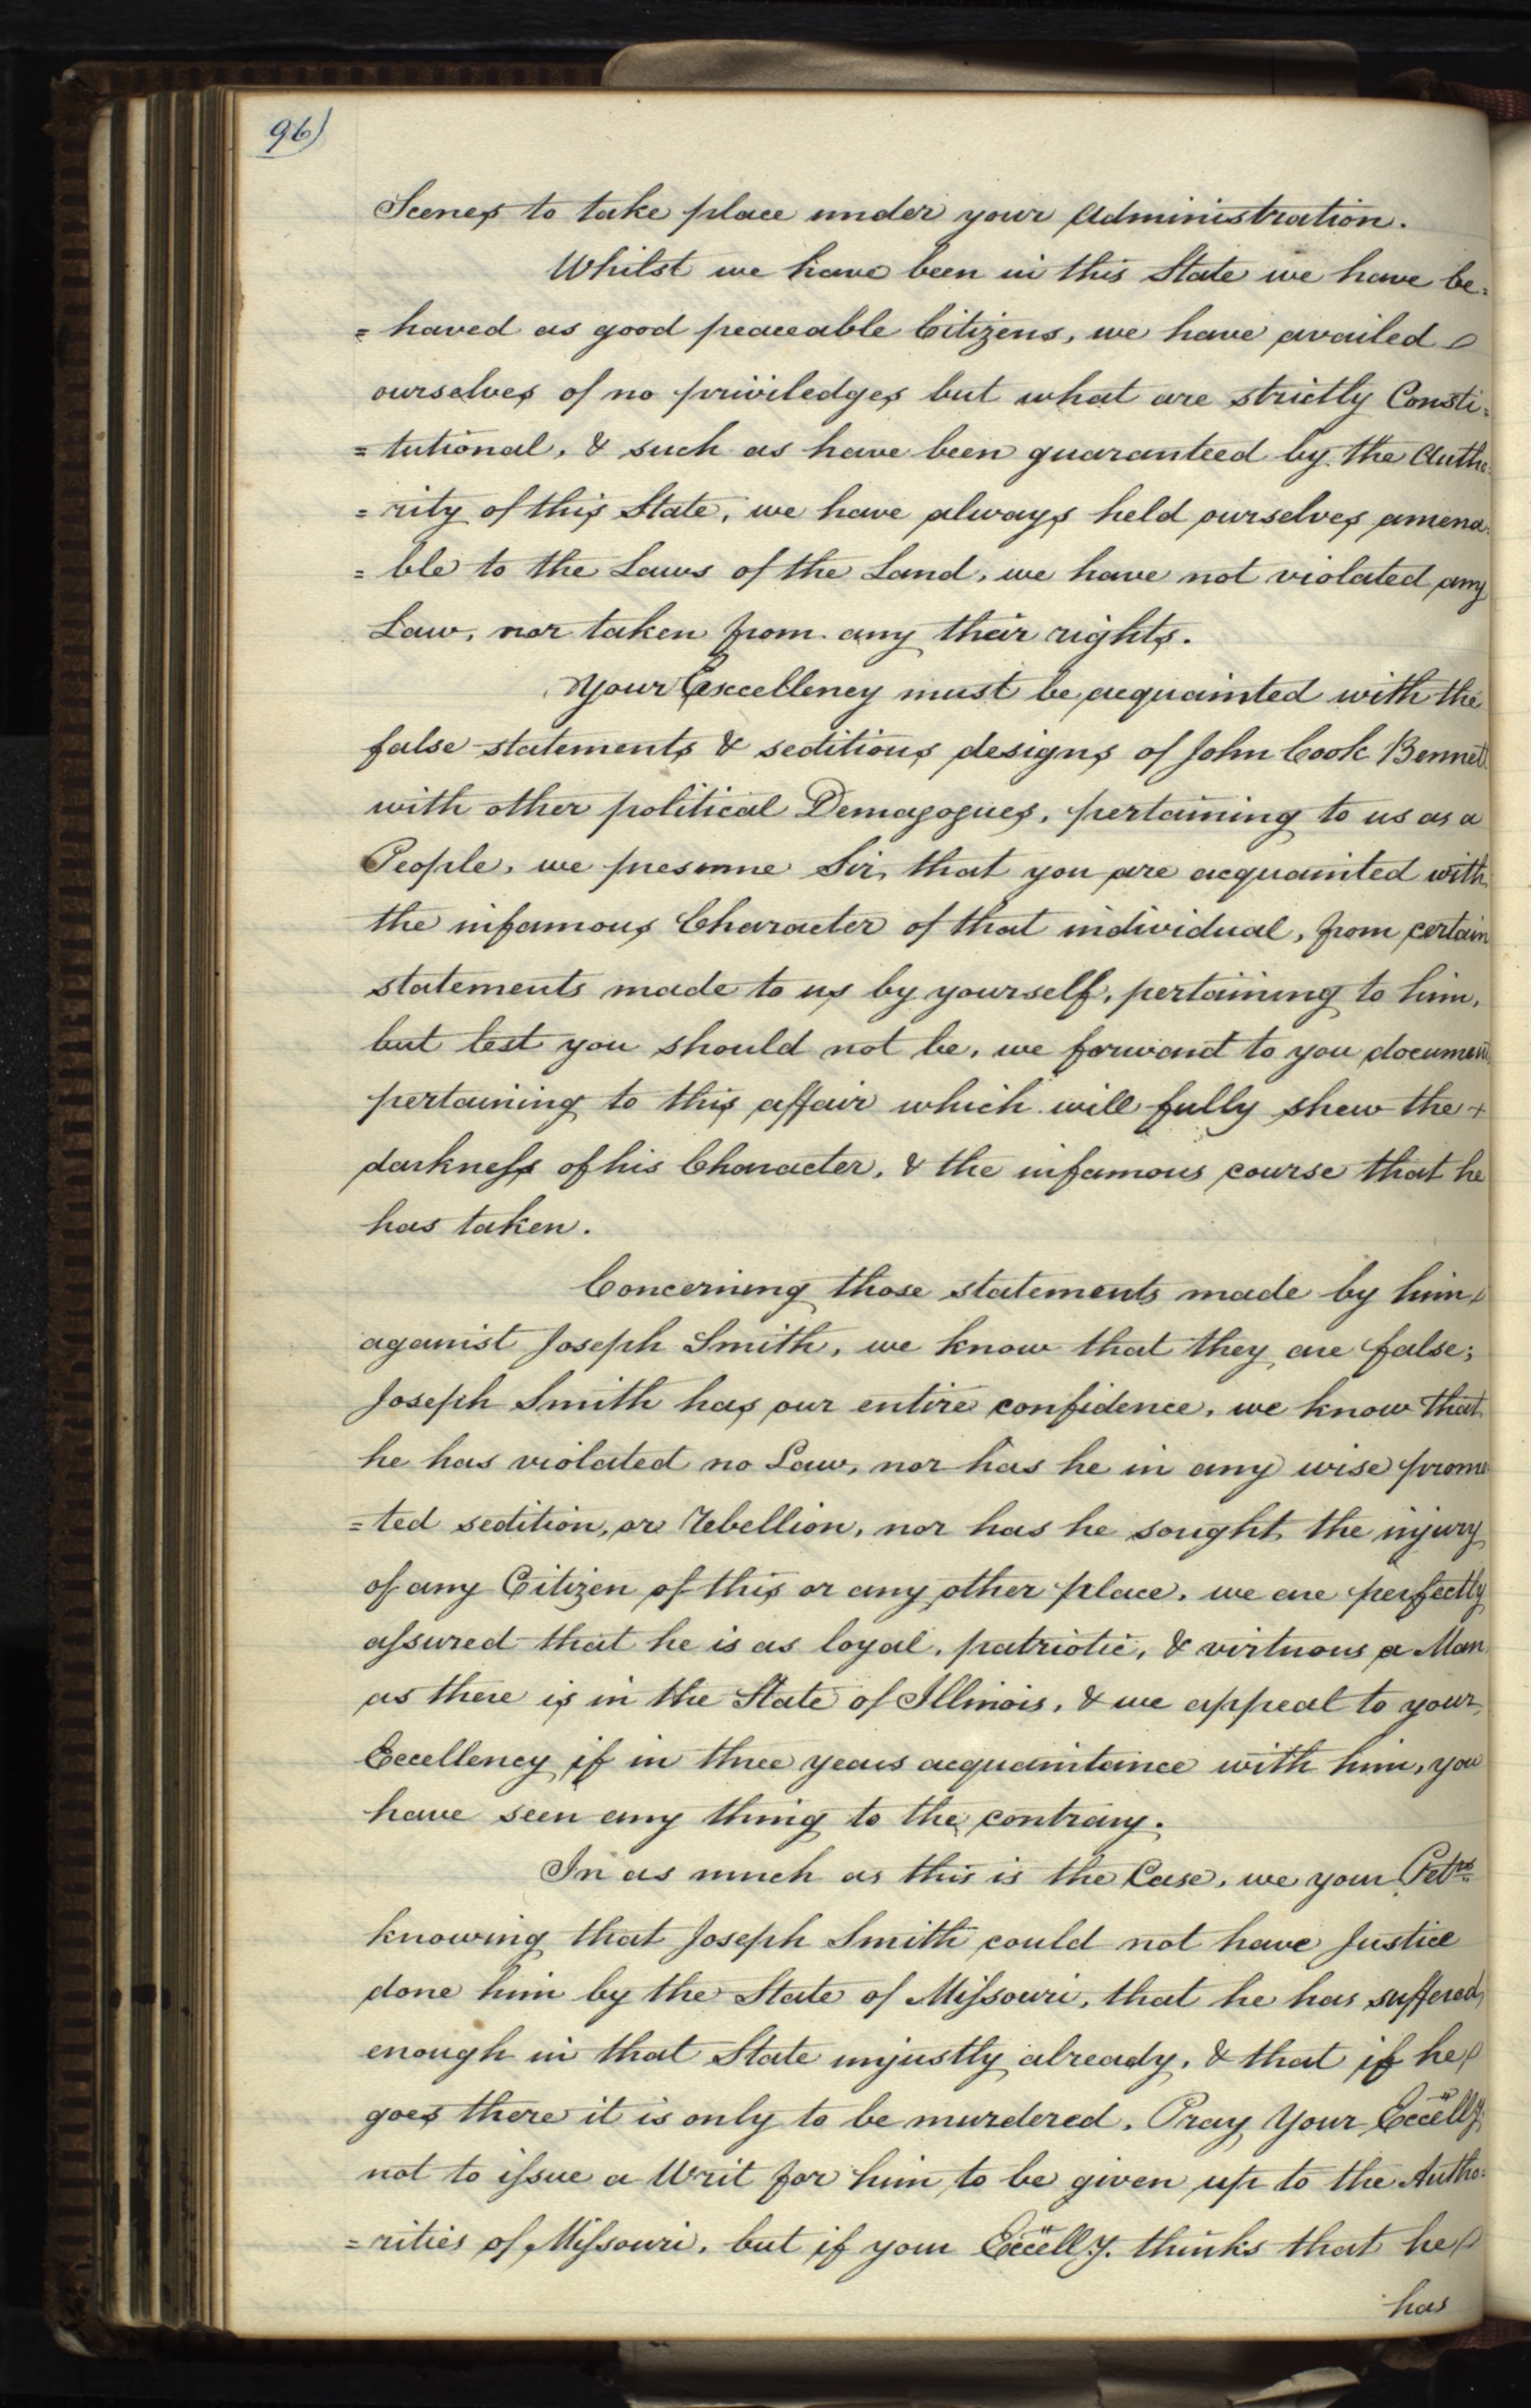 96)
Scenes to take place under your Administration.
Whilst we have been in this State we have be=
=haved as good peaceable Citizens, we have availed
ourselves of no priviledges but what are strictly Consti=
=tutional, & such as have been guaranteed by the Autho=
=rity of this State, we have always held ourselves amena=
=ble to the Laws of the Land, we have not violated any
Law, nor taken from any their rights.
Your Excellency must be acquainted with the
false statements & seditious designs of John Cook Bennet
with other political Demagogues, pertaining to us as a
People, we presume Sir, that you are acquainted with
the infamous Character of that individual, from certain
statements made to us by yourself, pertaining to him,
but lest you should not be, we forward to you documents
pertaining to this affair which will fully shew the
darkness of his Character, & the infamous course that he
has taken.
Concerning those statements made by him
against Joseph Smith, we know that they are false;
Joseph Smith has our entire confidence, we know that
he has violated no Law, nor has he in any wise promo
=ted sedition, or rebellion, nor has he sought the injury
of any Citizen of this or any other place, we are perfectly
assured that he is as loyal, patriotic, & virtuous a Man
as there is in the State of Illinois, & we appeal to your
Eccellency if in three years acquaintance with him, you
have seen any thing to the contrary.
In as much as this is the Case, we your Petrs
knowing that Joseph Smith could not have Justice
done him by the State of Missouri, that he has suffered
enough in that State unjustly already, & that if he
goes there it is only to be murdered, Pray Your Eccelly
not to issue a Writ for him to be given up to the Autho=
=rities of Missouri, but if your Eccelly. thinks that he
has